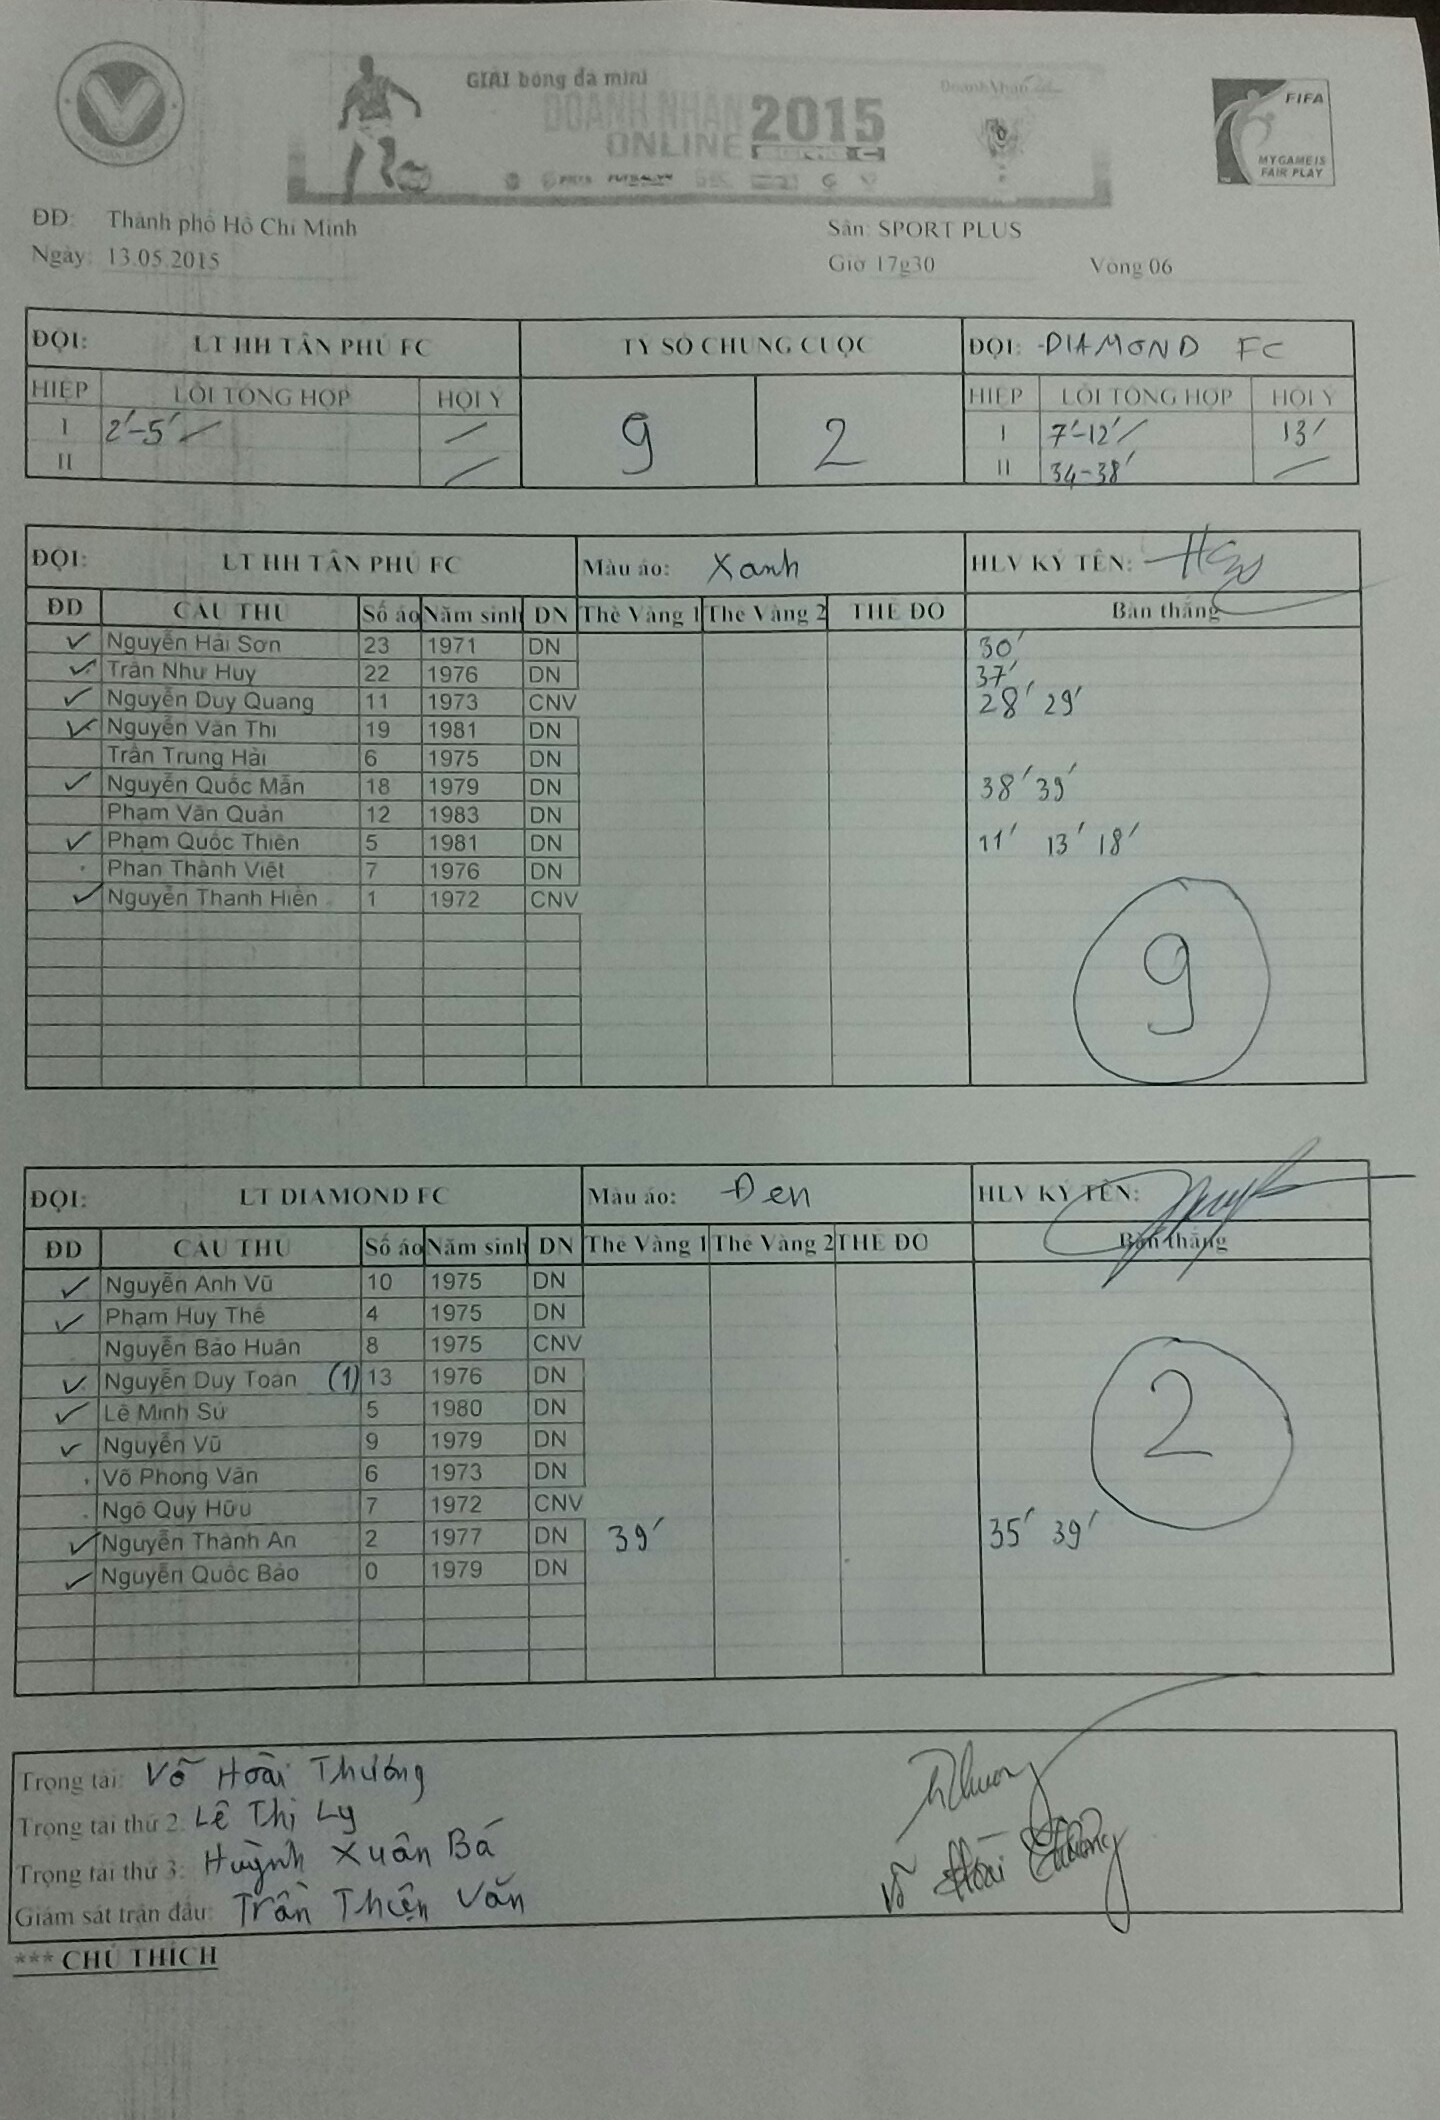 GIẢI bóng đá mini
DOANH NHÂN 2015
ONLINE
FIFA
MY GAME IS
FAIR PLAY
ĐD: Thành phố Hồ Chí Minh Sân: SPORT PLUS
Ngày: 13.05.2015 Giờ 17g30 Vòng 06
ĐỘI: LT HH TÂN PHÚ FC TỶ SỐ CHUNG CUỘC ĐỘI: DIAMOND FC
HIỆP LỖI TỔNG HỢP HỘI Ý 9 2 HIỆP LỖI TỔNG HỢP HỘI Ý
I 2'-5' / / I 7'-12' / 13'
II / II 34-38' /
ĐỘI: LT HH TÂN PHÚ FC Màu áo: Xanh HLV KÝ TÊN:
ĐD CẦU THỦ Số áo Năm sinh DN Thẻ Vàng 1 Thẻ Vàng 2 THẺ ĐỎ Bàn thắng
✓ Nguyễn Hải Sơn 23 1971 DN 30'
✓ Trần Như Huy 22 1976 DN 37'
✓ Nguyễn Duy Quang 11 1973 CNV 28' 29'
✓ Nguyễn Văn Thi 19 1981 DN
Trần Trung Hải 6 1975 DN
✓ Nguyễn Quốc Mẫn 18 1979 DN 38' 39'
Phạm Văn Quản 12 1983 DN
✓ Phạm Quốc Thiên 5 1981 DN 11' 13' 18'
Phan Thành Việt 7 1976 DN
✓ Nguyễn Thanh Hiền 1 1972 CNV
9
ĐỘI: LT DIAMOND FC Màu áo: Đen HLV KÝ TÊN:
ĐD CẦU THỦ Số áo Năm sinh DN Thẻ Vàng 1 Thẻ Vàng 2 THẺ ĐỎ Bàn thắng
✓ Nguyễn Anh Vũ 10 1975 DN
✓ Phạm Huy Thế 4 1975 DN
Nguyễn Bảo Huân 8 1975 CNV
✓ Nguyễn Duy Toàn (1) 13 1976 DN
✓ Lê Minh Sử 5 1980 DN
✓ Nguyễn Vũ 9 1979 DN
Võ Phong Vân 6 1973 DN
Ngô Quý Hữu 7 1972 CNV
✓ Nguyễn Thành An 2 1977 DN 39' 35' 39'
✓ Nguyễn Quốc Bảo 0 1979 DN
2
Trọng tài: Võ Hoài Thương
Trọng tài thứ 2: Lê Thị Ly
Trọng tài thứ 3: Huỳnh Xuân Bá
Võ Hoài Thương
Giám sát trận đấu: Trần Thiện Văn
*** CHÚ THÍCH